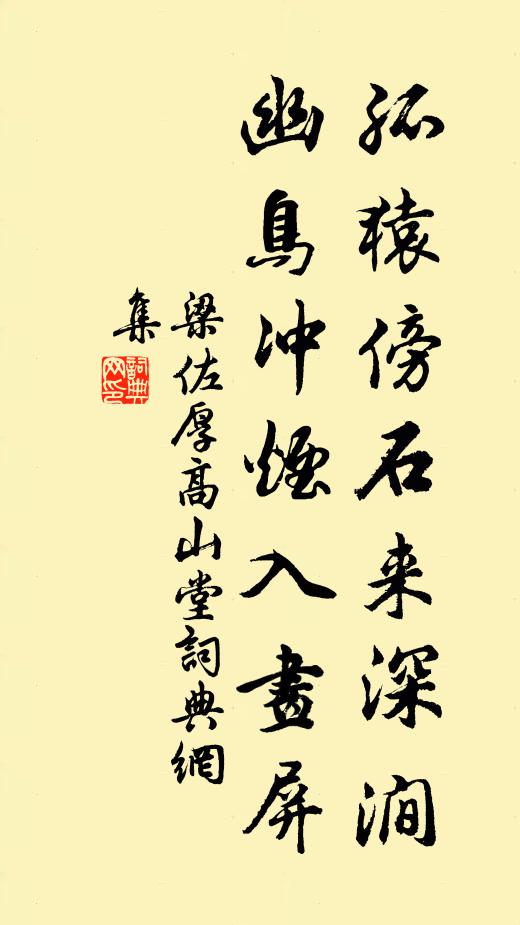 孤猿傍石来深涧
幽鳥冲煙入畫屏
梁佐厚高山堂詞典網
集
詞典
网印